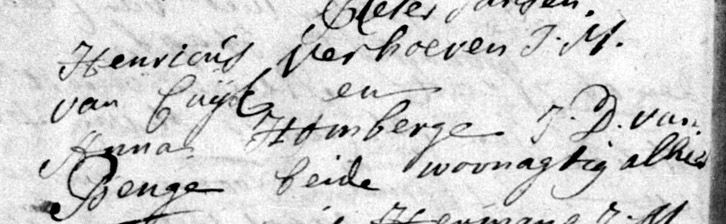 Pieter Jansen.
Henricus Verhoeven J. M.
van Cuijk en
Anna Homberge J. D. van
Benge beide woonagtig alhier
Hermans J. M.